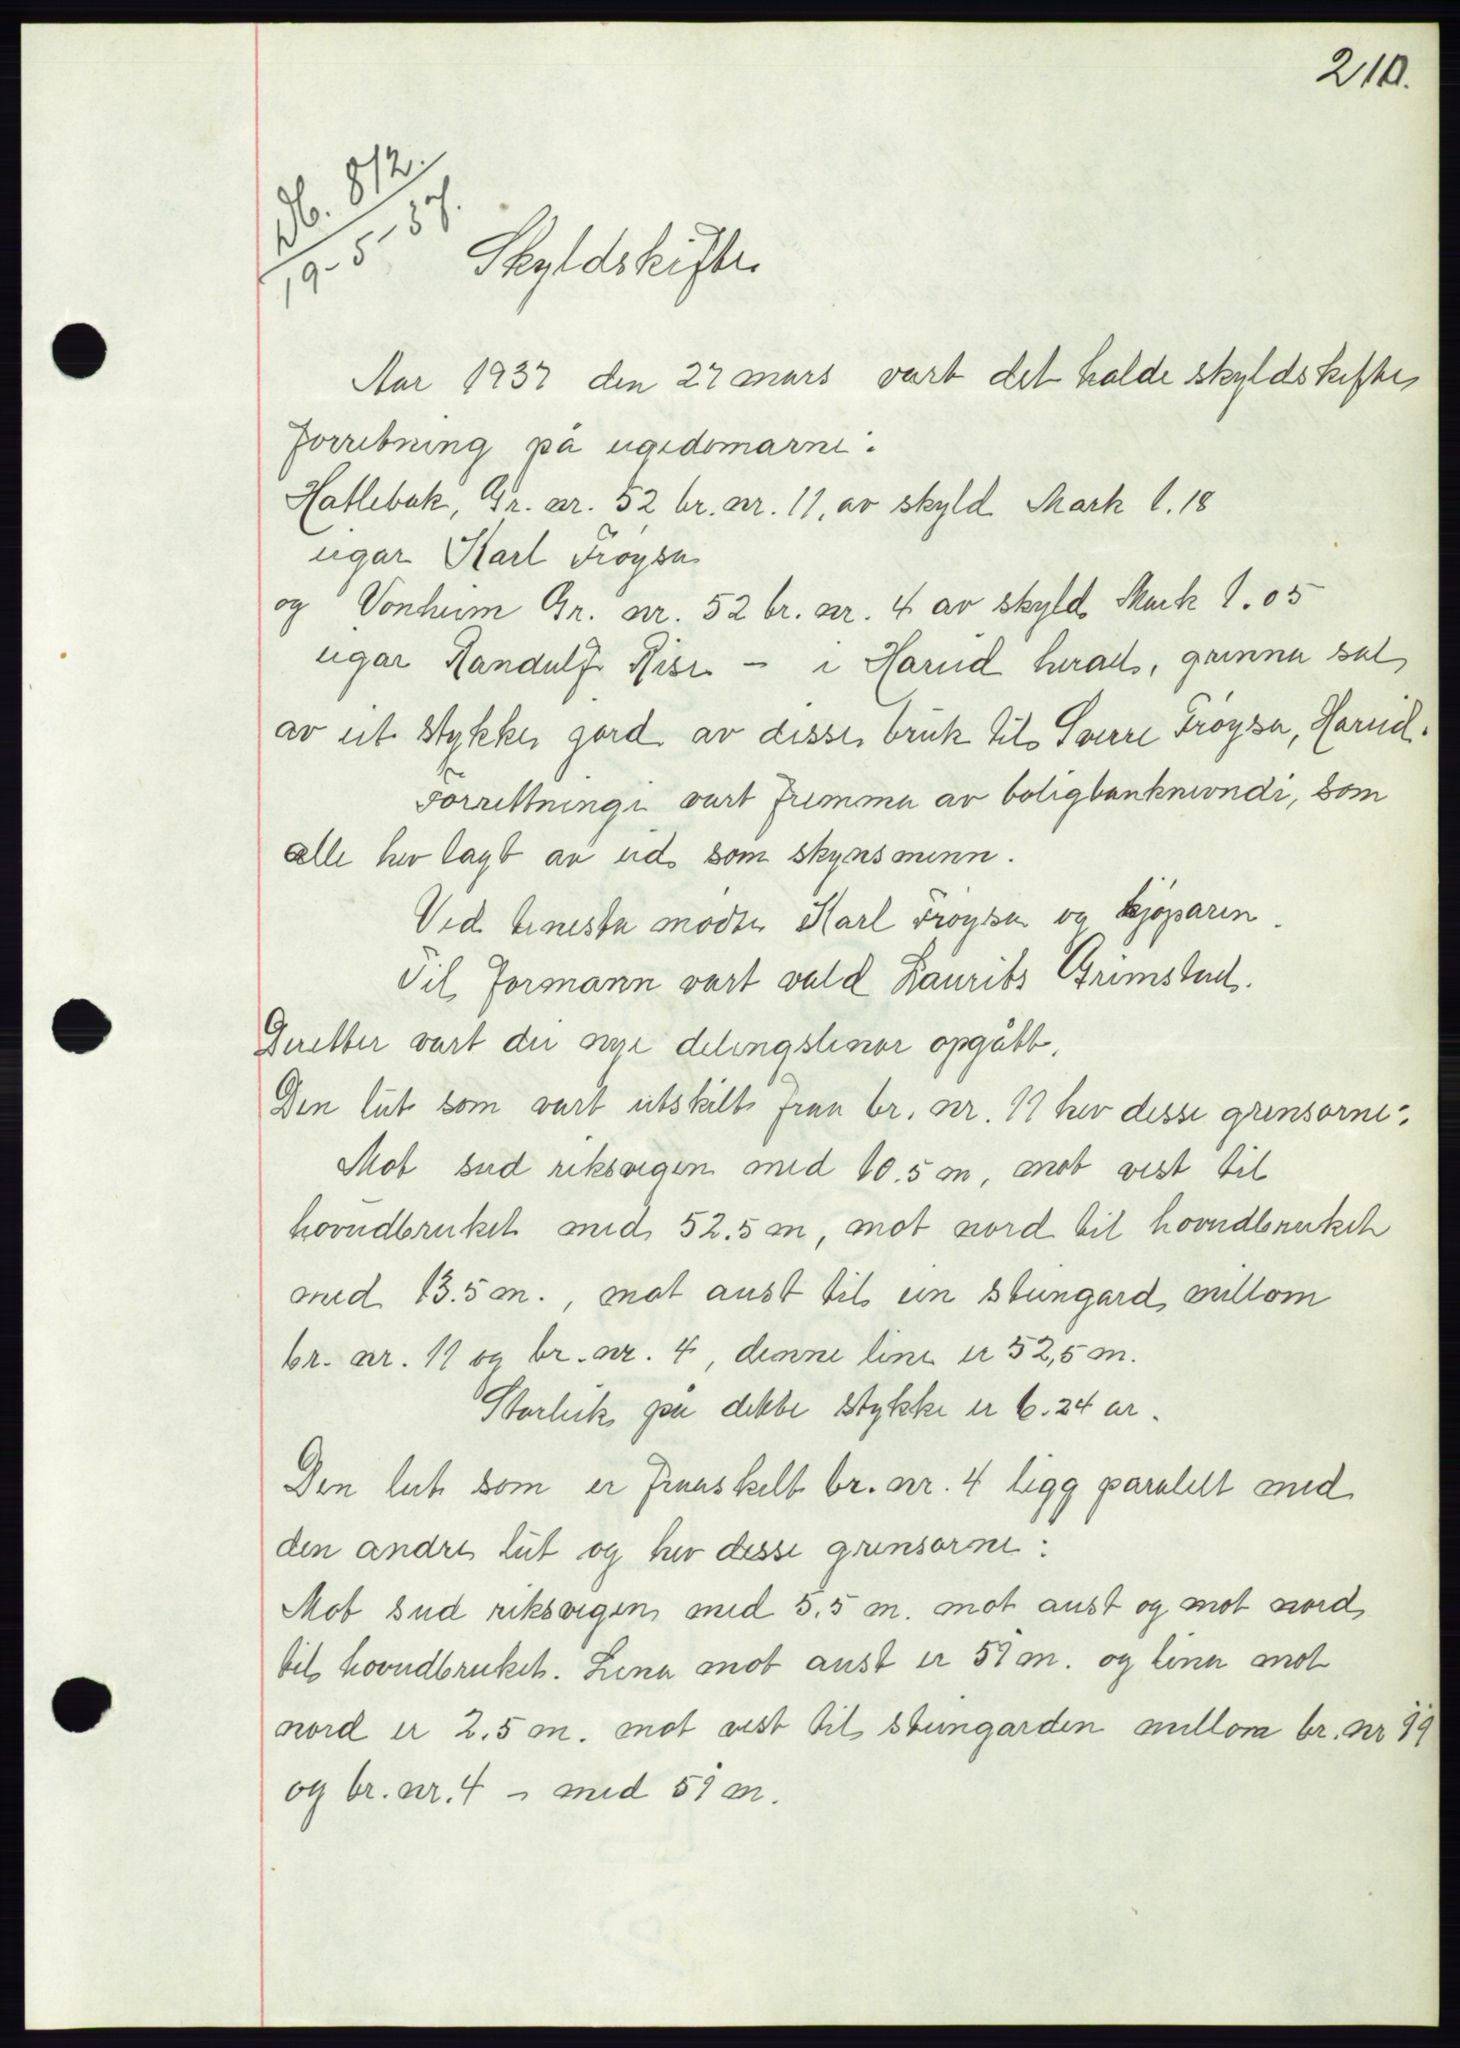 210.
Db. 812.
19-5-37.
Skyldskifte.
Aar 1937 den 27 mars vart det halde skyldskifte
forretning på eigedomarne:
Hatlebak, Gr. nr. 52 br. nr. 11, av skyld Mark 1.18
eigar Karl Frøysa
og Vonheim Gr. nr. 52 br. nr. 4 av skyld Mark 1.05
eigar Randulf Rise - i Hareid herad, grunna sal
av eit stykke jord av disse bruk til Sverre Frøysa, Hareid.
Forrettningi vart fremma av boligbanknevndi, som
alle hev lagt av eid som skynsmenn.
Ved tenesta mødte Karl Frøysa og kjøparen.
Til formann vart vald Laurits Grimstad.
Deretter vart dei nye delingslinor opgått.
Den lut som vart utskilt fraa br. nr. 11 hev desse grensorne:
Mot sud riksvegen med 10.5 m, mot vest til
hovudbruket med 52.5 m, mot nord til hovudbruket
med 13.5 m., mot aust til ein steingard millom
br. nr. 11 og br. nr. 4, denne line er 52,5 m.
Storleik på dette stykke er 6.24 ar.
Den lut som er fraaskilt br. nr. 4 ligg paralelt med
den andre lut og hev desse grensorne:
Mot sud riksvegen med 5.5 m. mot aust og mot nord
til hovudbruket. Lina mot aust er 51 m. og lina mot
nord er 2.5 m. mot vest til steingarden millom br. nr 11
og br. nr. 4 - med 51 m.